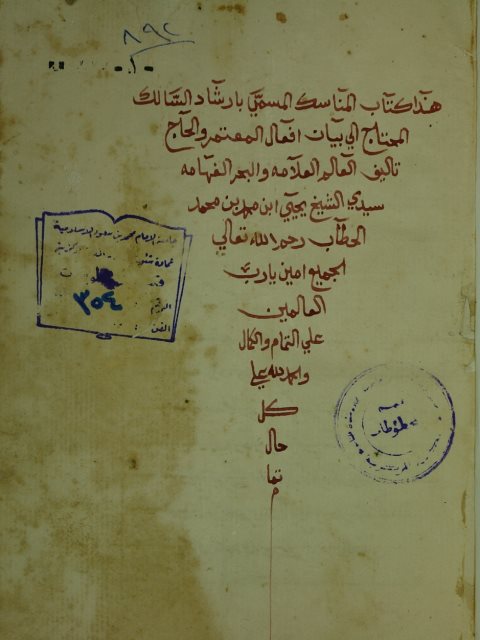 ٨٩٢
هذا كتاب المناسك المسمى بارشاد السالك
المحتاج الي بيان افعال المعتمر والحآج
تاليف العالم العلامه والبحر الفهامه
سيدي الشيخ يحيي ابن محمد بن محمد
الحطاب رحمه الله تعالي
الجميع امين يا رب
العالمين
علي التمام والكمال
والحمد لله علي
كل
حال
تم
جامعة الامام محمد بن سعود الاسلامية
عمادة شئون
قسم
الرقم ٣٥٤
الفن
قسم
مخطوطات